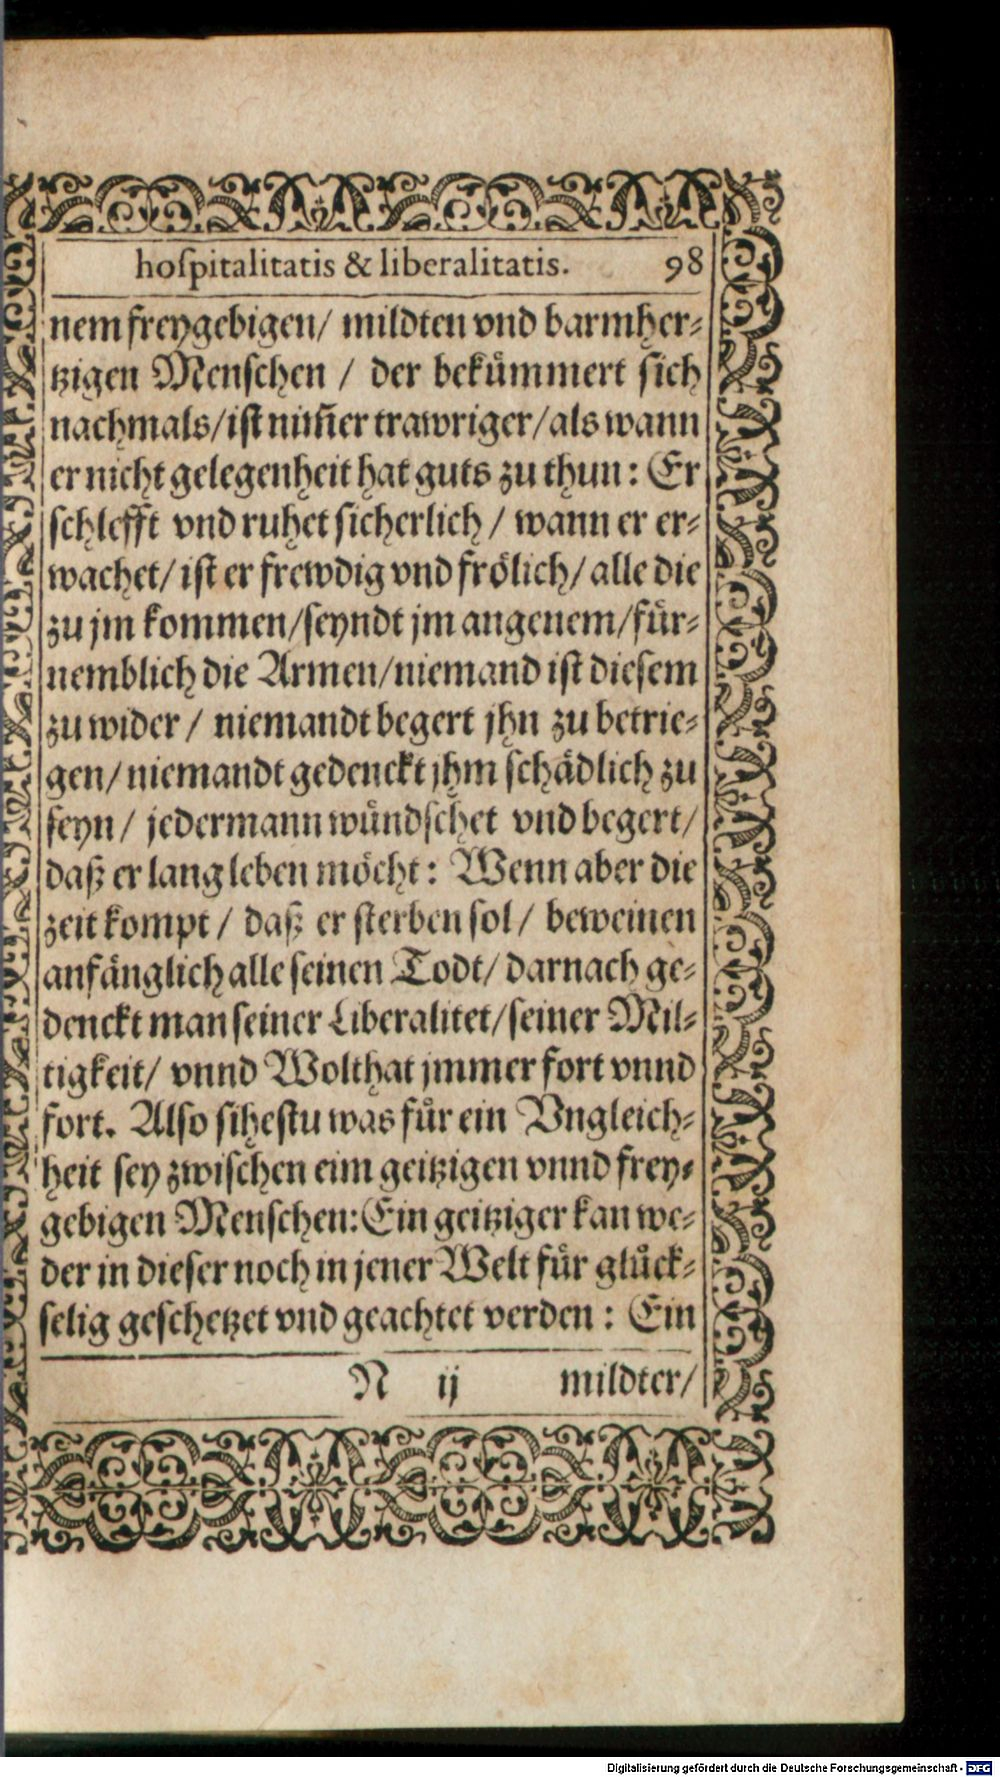 hoſpitalitatis & liberalitatis. 98
nem freygebigen/ mildten vnd barmher⸗
tzigen Menſchen / der bekuͤmmert ſich
nachmals/iſt nim̃er trawriger/als wann
er nicht gelegenheit hat guts zu thun: Er
ſchlefft vnd ruhet ſicherlich / wann er er⸗
wachet/ iſt er frewdig vnd froͤlich/ alle die
zu jm kommen/ſeyndt jm angenem/fuͤr⸗
nemblich die Armen/niemand iſt dieſem
zu wider / niemandt begert jhn zu betrie⸗
gen/ niemandt gedenckt jhm ſchaͤdlich zu
ſeyn/ jedermann wuͤndſchet vnd begert/
daß er lang leben moͤcht: Wenn aber die
zeit kompt / daß er ſterben ſol/ beweinen
anfaͤnglich alle ſeinen Todt/ darnach ge⸗
denckt man ſeiner Liberalitet/ſeiner Mil⸗
tigkeit/ vnnd Wolthat jmmer fort vnnd
fort. Alſo ſiheſtu was fuͤr ein Vngleich⸗
heit ſey zwiſchen eim geitzigen vnnd frey⸗
gebigen Menſchen: Ein geitziger kan we⸗
der in dieſer noch in jener Welt fuͤr gluͤck⸗
ſelig geſchetzet vnd geachtet verden : Ein
N ij mildter/
Digitalisierung gefördert durch die Deutsche Forschungsgemeinschaft - DFG